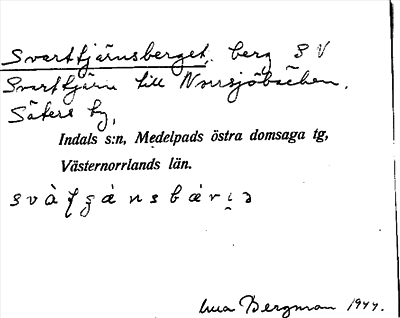 Svarttjärnsberget, berg SV
Svarttjärn till Norrsjöbäcken.
Säters by,
Indals s:n, Medelpads östra domsaga tg,
Västernorrlands län.
Bergman 1944.